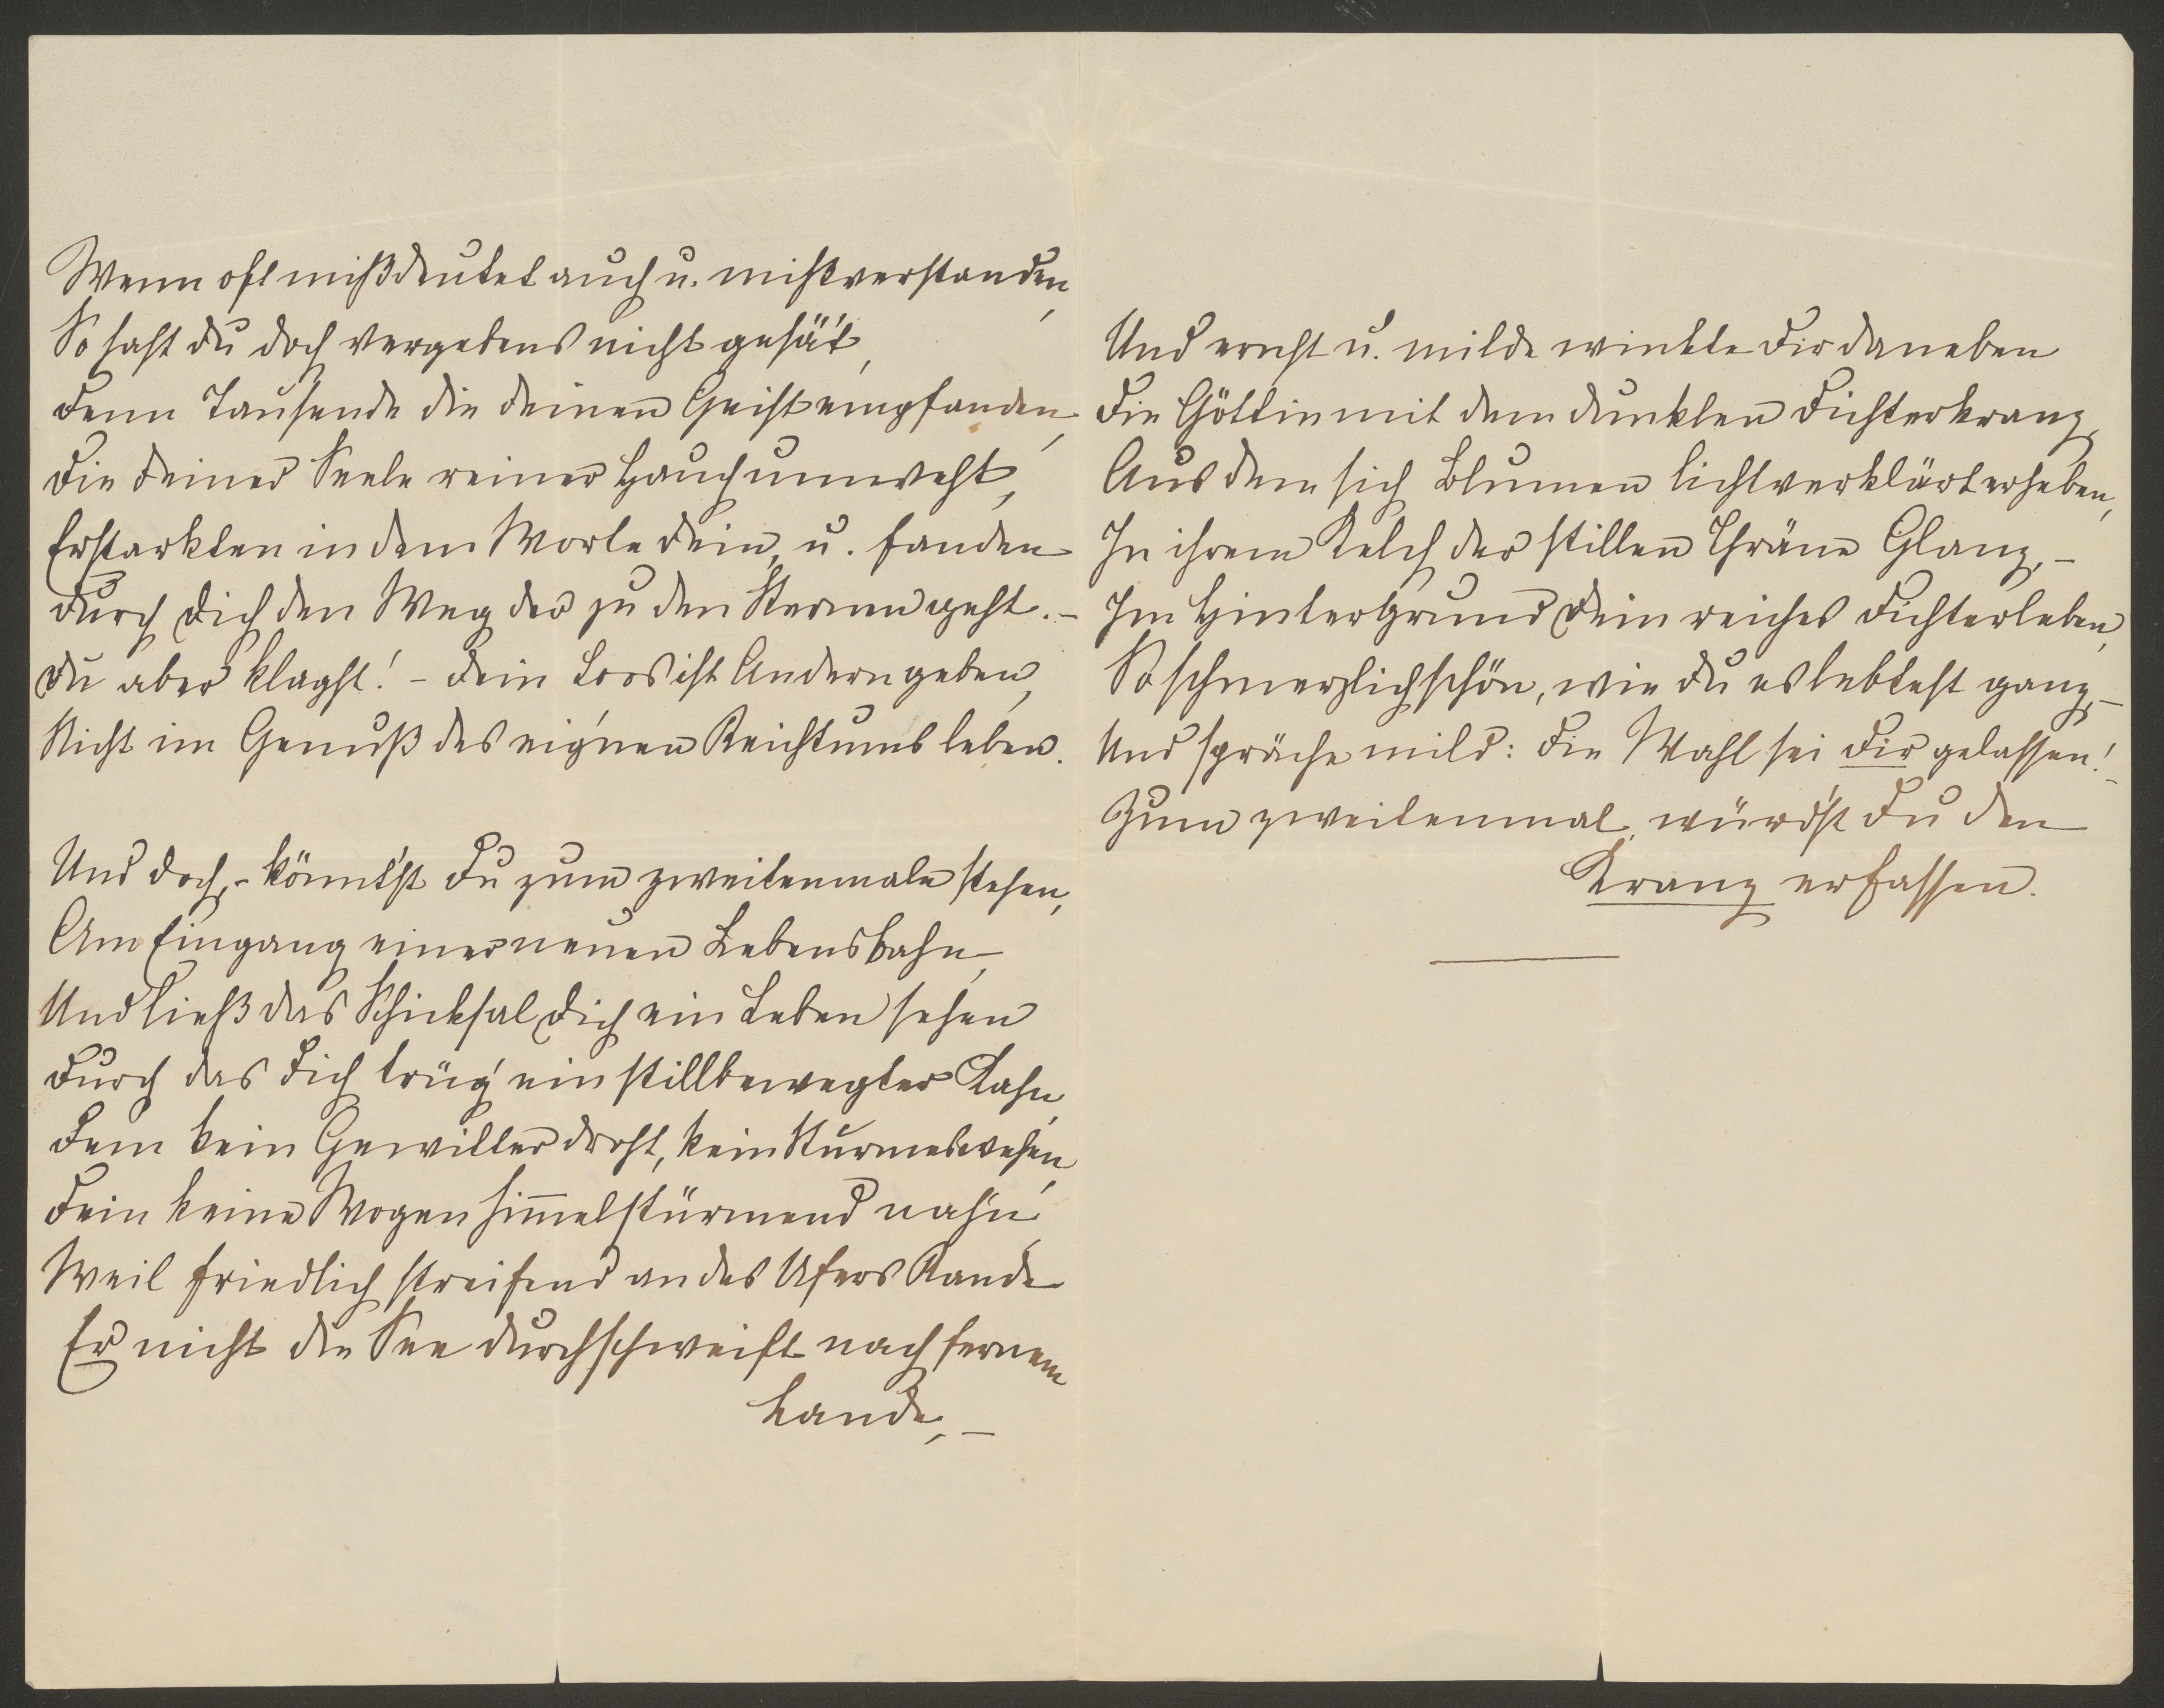 Wenn oft mißdeutet auch u. mißverstanden,
So hast du doch vergebens nicht gesä't,
Denn Tausende die deinen Geist empfanden,
Die deiner Seele reiner Hauch umweht,
Erstarkten in dem Worte dein, u. fanden
Durch Dich den Weg der zu den Sternen geht. –
Du aber klagst! – Dein Loos ist Andern geben,
Nicht im Genuß des eig'nen Reichtums leben.
Und doch, – könnt'st Du zum zweitenmale stehen,
Am Eingang einer neuen Lebensbahn,
Und ließ das Schicksal Dich ein Leben sehen
Durch das Dich trüg' ein stillbewegter Kahn,
Dem kein Gewitter droht, kein Sturmeswehen,
Dem keine Wogen him̅elstürmend nah'n,
Weil friedlich streifend an des Ufers Rande
Er nicht die See durchschweift nach fernem
Lande, –
Und ernst u. milde winkte Dir daneben
Die Göttin mit dem dunklen Dichterkranz,
Aus dem sich Blumen lichtverklärt erheben,
In ihrem Kelch der stillen Thräne Glanz, –
Im Hintergrund Dein reiches Dichterleben,
So schmerzlich schön, wie du es lebtest ganz, –
Und spräche mild: Die Wahl sei Dir gelassen! –
Zum zweitenmal, würd'st Du den
Kranz erfassen.